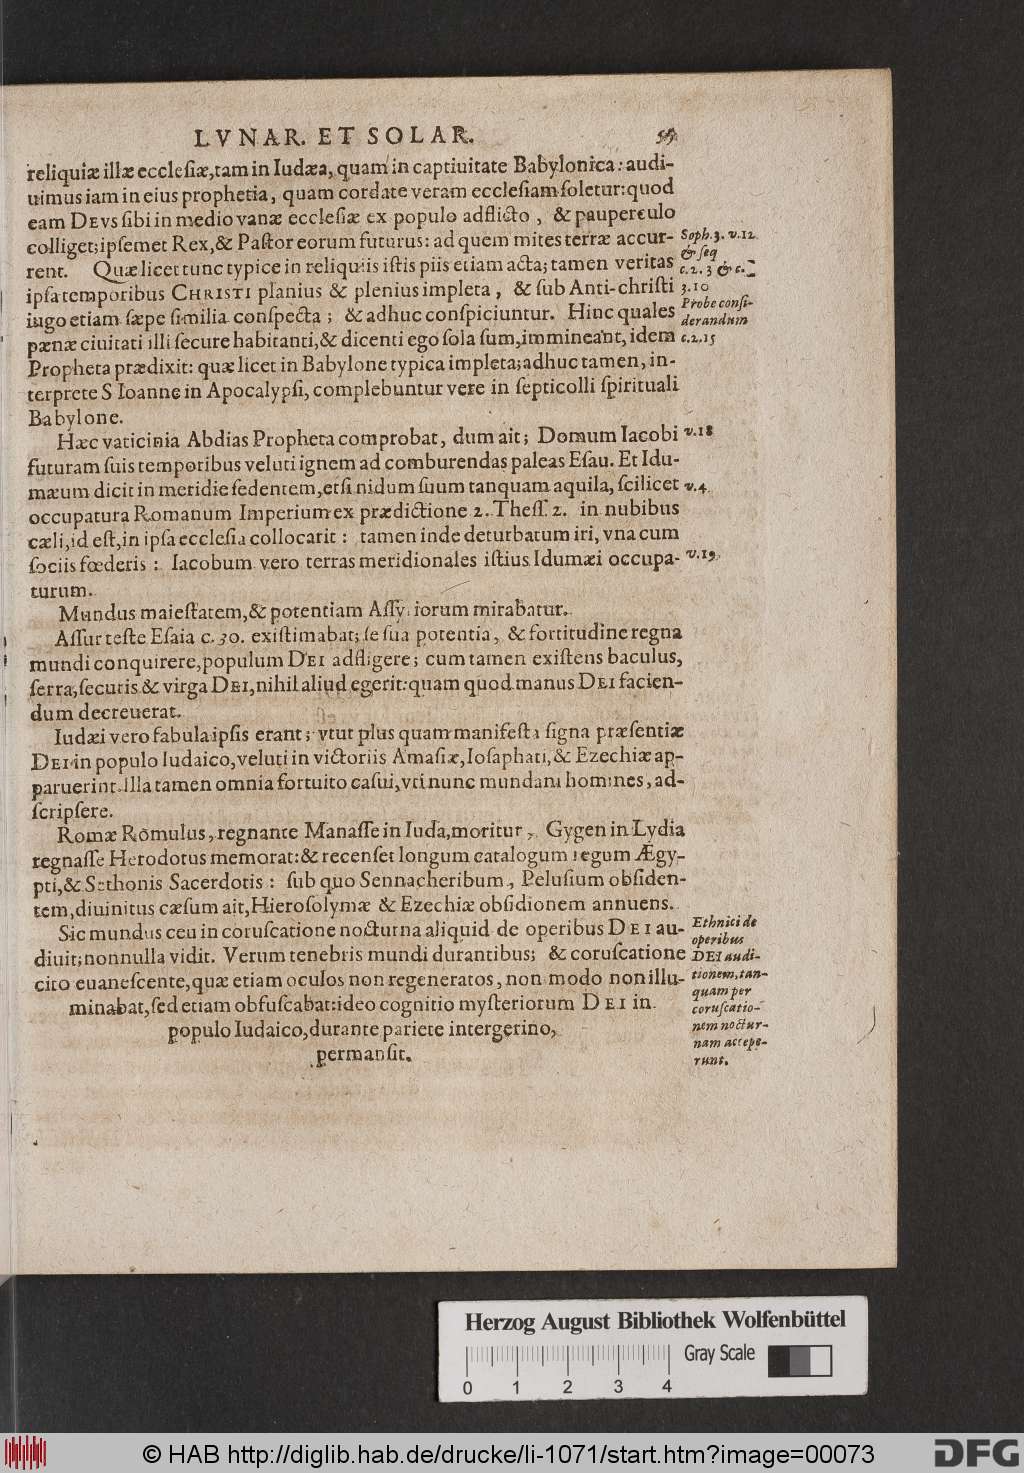 LVNAR. ET SOLAR.
reliquiæ illæ ecclesiæ, tam in Iudæa, quam in captiuitate Babylonica: audi-
uimus iam in eius prophetia, quam cordate veram ecclesiam soletur: quod
eam DEVS sibi in medio vanæ ecclesiæ ex populo adflicto, & pauperculo
colliget; ipsemet Rex, & Pastor eorum futurus: ad quem mites terræ accur-
rent. Quæ licet tunc typice in reliquiis istis piis etiam acta; tamen veritas
ipsa temporibus CHRISTI planius & plenius impleta, & sub Anti-christi
iugo etiam sæpe similia conspecta; & adhuc conspiciuntur. Hinc quales
pænæ ciuitati illi secure habitanti, & dicenti ego sola sum, immineant, idem
Propheta prædixit: quæ licet in Babylone typica impleta; adhuc tamen, in-
terprete S Ioanne in Apocalypsi, complebuntur vere in septicolli spirituali
Babylone.
Soph. 3. v. 12
& seq
c. 2. 3 & c.
3. 10
Probe consi-
derandum
c. 2. 15
Hæc vaticinia Abdias Propheta comprobat, dum ait; Domum Iacobi
futuram suis temporibus veluti ignem ad comburendas paleas Esau. Et Idu-
mæum dicit in meridie sedentem, etsi nidum suum tanquam aquila, scilicet
occupatura Romanum Imperium ex prædictione 2. Thess. 2. in nubibus
cæli, id est, in ipsa ecclesia collocarit: tamen inde deturbatum iri, vna cum
sociis fœderis: Iacobum vero terras meridionales istius Idumæi occupa-
turum.
v. 18
v. 4
v. 19
Mundus maiestatem, & potentiam Assyriorum mirabatur.
Assur teste Esaia c. 30. existimabat; se sua potentia, & fortitudine regna
mundi conquirere, populum DEI adfligere; cum tamen existens baculus,
serra, securis & virga DEI, nihil aliud egerit: quam quod manus DEI facien-
dum decreuerat.
Iudæi vero fabula ipsis erant; vtut plus quam manifesta signa præsentiæ
DEI in populo Iudaico, veluti in victoriis Amasiæ, Iosaphati, & Ezechiæ ap-
paruerint. Illa tamen omnia fortuito casui, vti nunc mundani homines, ad-
scripsere.
Romæ Romulus, regnante Manasse in Iuda, moritur, Gygen in Lydia
regnasse Herodotus memorat: & recenset longum catalogum regum Ægy-
pti, & Sethonis Sacerdotis: sub quo Sennacheribum, Pelusium obsiden-
tem, diuinitus cæsum ait, Hierosolymæ & Ezechiæ obsidionem annuens.
Sic mundus ceu in coruscatione nocturna aliquid de operibus DEI au-
diuit; nonnulla vidit. Verum tenebris mundi durantibus; & coruscatione
cito euanescente, quæ etiam oculos non regeneratos, non modo non illu-
minabat, sed etiam obfuscabat: ideo cognitio mysteriorum DEI in
populo Iudaico, durante pariete intergerino,
permansit.
Ethnici de
operibus
DEI audi-
tionem, tan-
quam per
coruscatio-
nem noctur-
nam accepe-
runt.
Herzog August Bibliothek Wolfenbüttel
Gray Scale
0 1 2 3 4
© HAB http://diglib.hab.de/drucke/li-1071/start.htm?image=00073
DFG